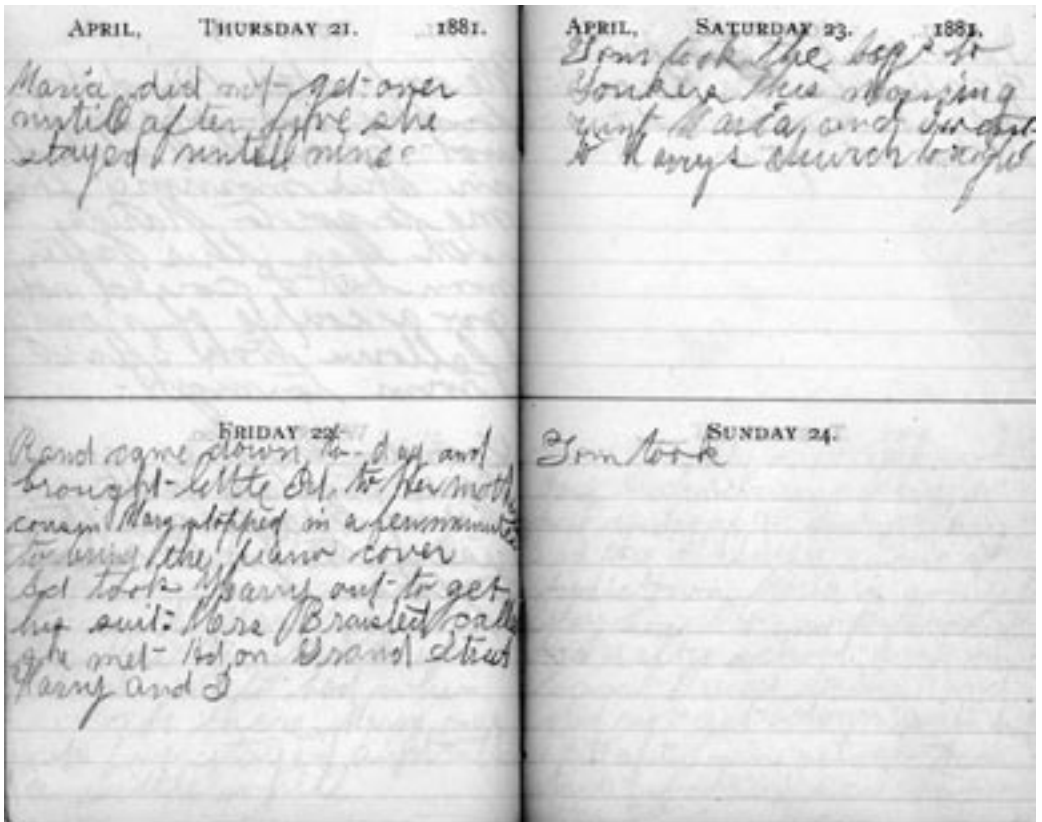 APRIL, THURSDAY 21. 1881.
Maria did not get over
until after five she
stayed until nine
FRIDAY 22.
Rand came down to-day and
brought little Ed, to her moth
cousin Mary stopped in a few minutes
to bring the piano cover
Ed took Harry out to get
his suit. Mrs Braisted calle
she met Ed on Grand Street
Harry and I
APRIL, SATURDAY 23. 1881.
Tom took the boys to
Yonkers this morning
aunt Maria, and I went
to Harry's church tonight
SUNDAY 24.
Tom took